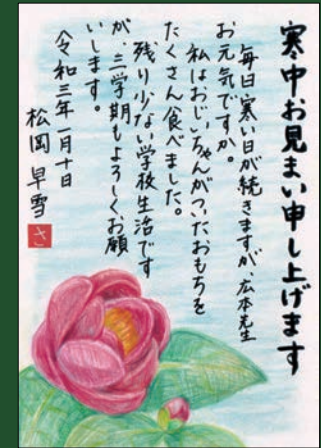 寒中お見まい申し上げます
毎日寒い日が続きますが、広本先生
お元気ですか。
私はおじいちゃんがついたおもちを
たくさん食べました。
残り少ない学校生活です
が、三学期もよろしくお願
いします。
令和三年一月十日
松岡早雪
さ